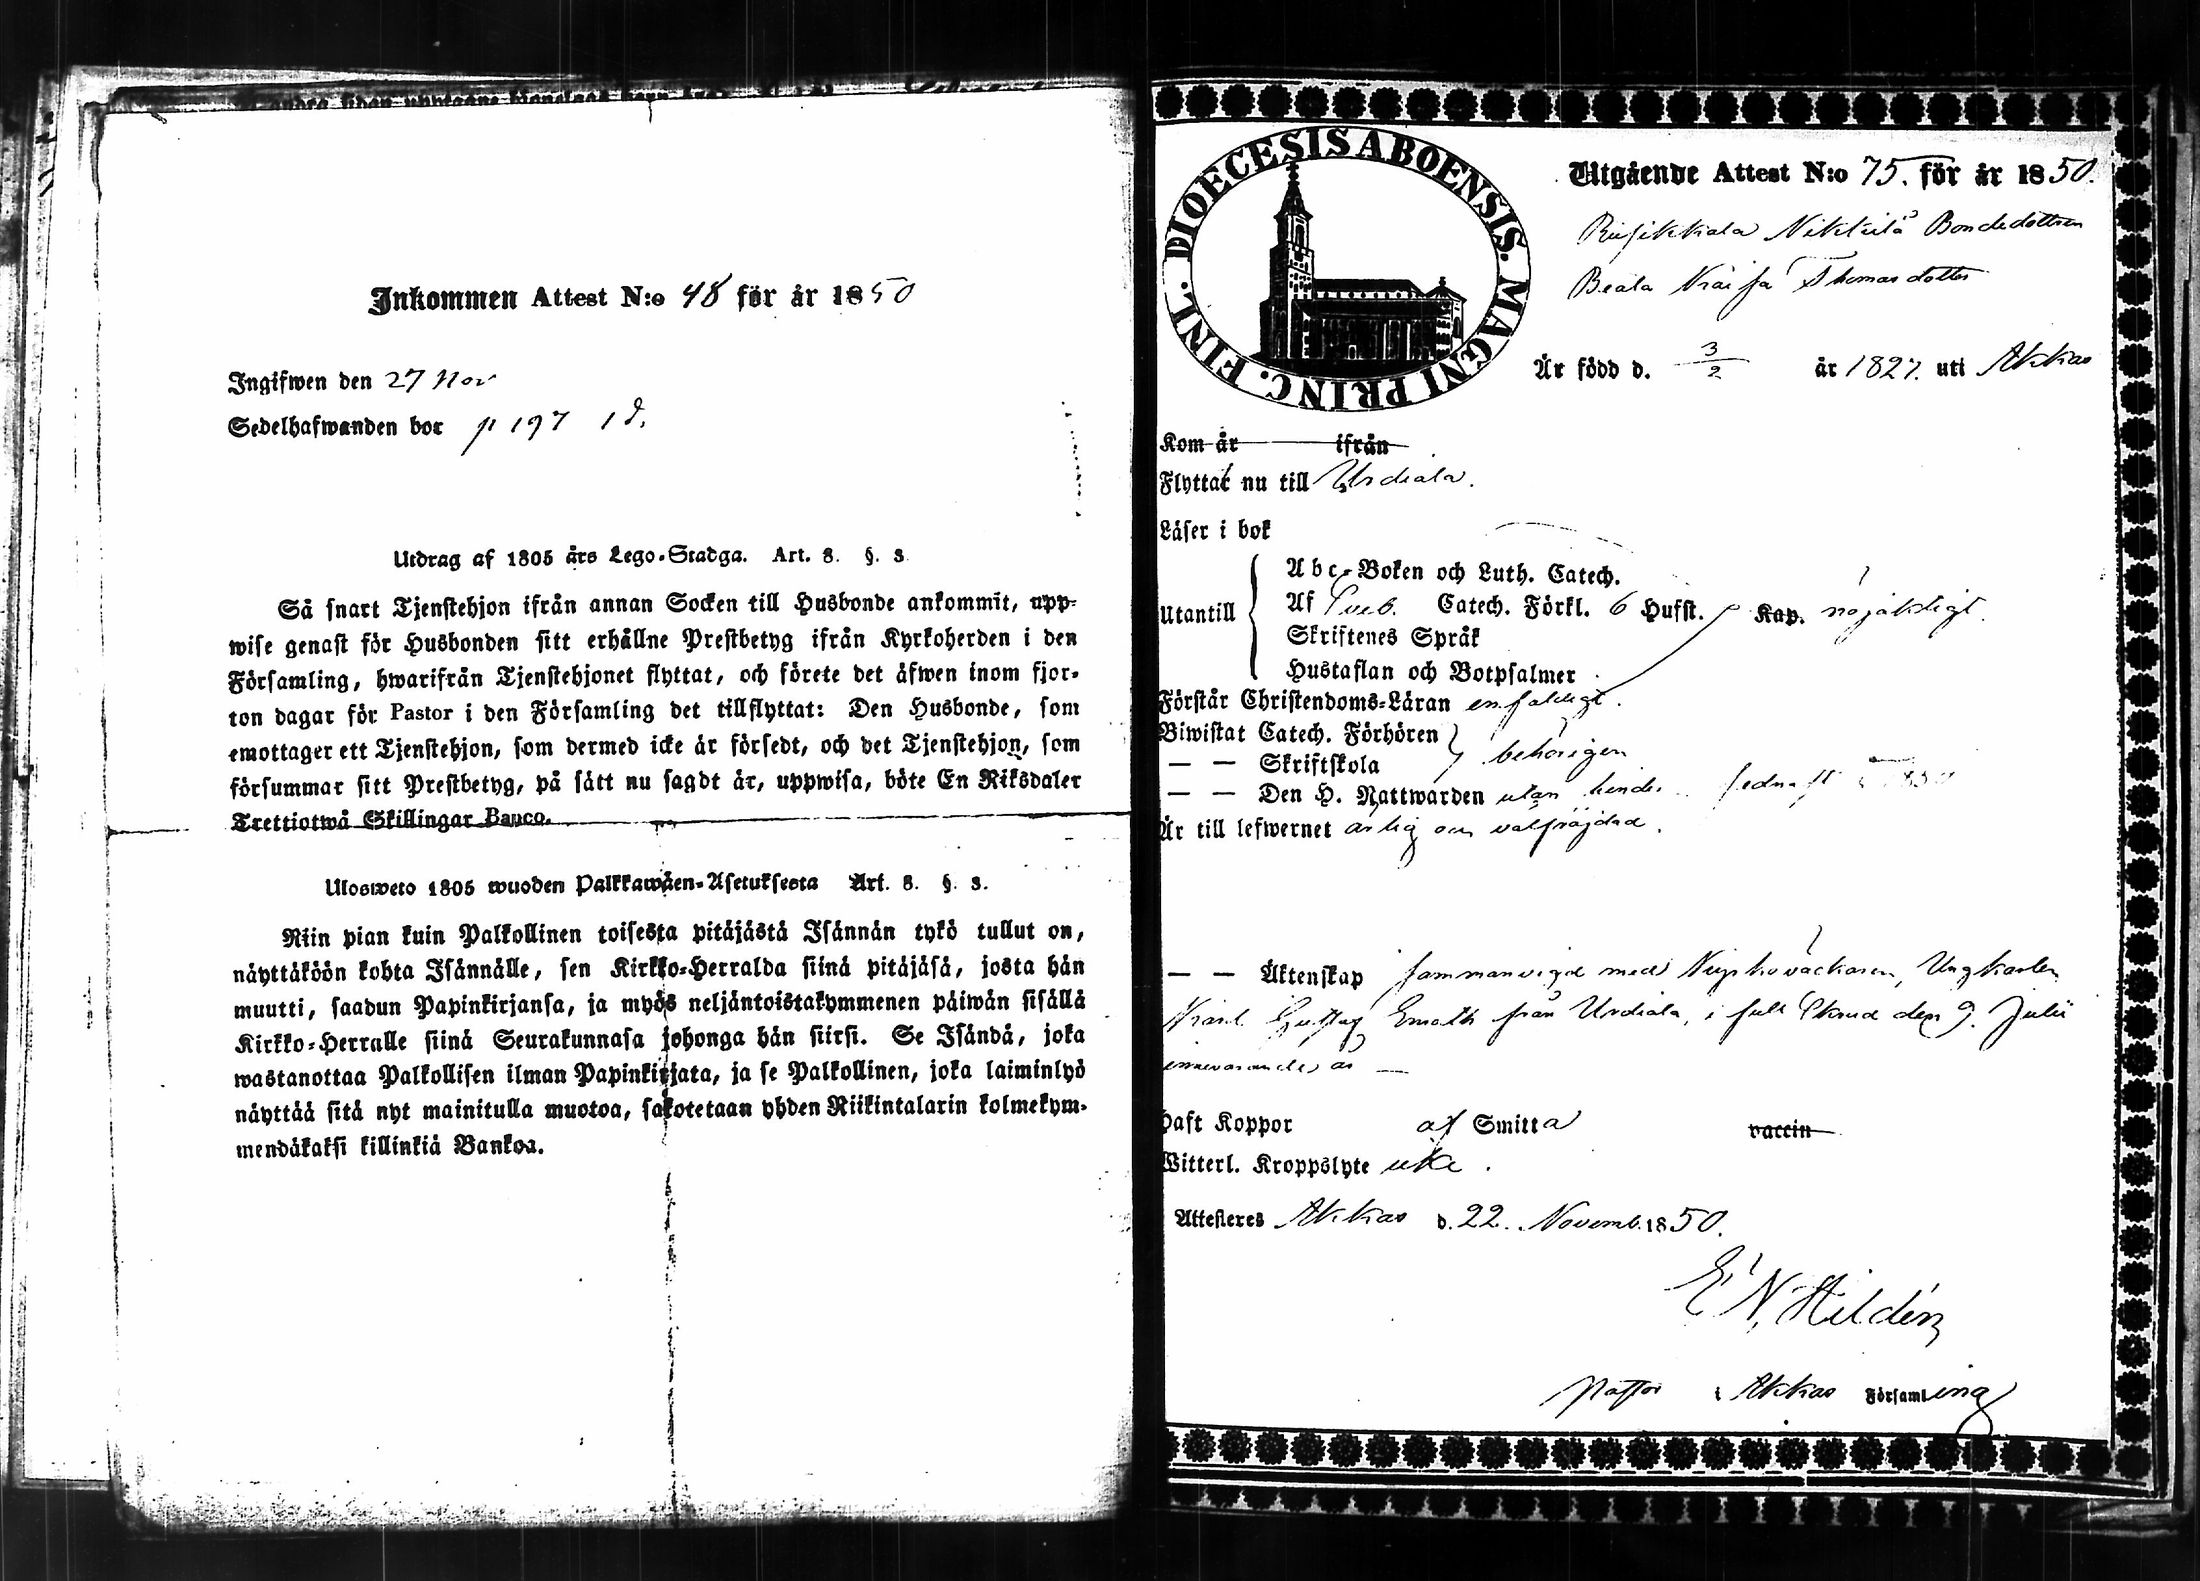 Inkommen Attest N:o 48 för år 1850
Ingifwen den 27 Nov
Sedelhafwanden bor p 197 1 d.
Utdrag af 1805 års Lego-Stadga. Art. 8. §. 3.
Så snart Tjenstehjon ifrån annan Socken till Husbonde ankommit, upp-
wise genast för Husbonden sitt erhållne Prestbetyg ifrån Kyrkoherden i den
Församling, hwarifrån Tjenstehjonet flyttat, och förete det äfwen inom fjor-
ton dagar för Pastor i den Församling det tillflyttat: Den Husbonde, som
emottager ett Tjenstehjon, som dermed icke är försedt, och det Tjenstehjon, som
försummar sitt Prestbetyg, på sätt nu sagdt är, uppwisa, böte En Riksdaler
Trettiotwå Skillingar Banco.
Ulosweto 1805 wuoden Palkkawäen-Asetuksesta Art. 8. §. 3.
Niin pian kuin Palkollinen toisesta pitäjästä Isännän tykö tullut on,
näyttäköön kohta Isännälle, sen Kirkko-Herralda siinä pitäjäsä, josta hän
muutti, saadun Papinkirjansa, ja myös neljäntoistakymmenen päiwän sisällä
Kirkko-Herralle siinä Seurakunnasa johonga hän siirsi. Se Isändä, joka
wastanottaa Palkollisen ilman Papinkirjata, ja se Palkollinen, joka laiminlyö
näyttää sitä nyt mainitulla muotoa, sakotetaan yhden Riikintalarin kolmekym-
mendäkaksi killinkiä Bankoa.
DIOECESIS ABOENSIS. MAGNI PRINC. FINL.
Utgående Attest N:o 75. för år 1850.
Nikkilä Bondedottren
Beata Kaisa Thomasdotter
Är född d. 3/2 år 1827. uti Akkas
Kom år ifrån
Flyttat nu till Urdiala.
Läser i bok
Abc-Boken och Luth. Catech.
Utantill Af Sveb. Catech. Förkl. 6 Hufst. Kap. nöjaktigt.
Skriftenes Språk
Hustaflan och Botpsalmer
Förstår Christendoms-Läran enfaldigt.
Biwistat Catech. Förhören
— — Skriftskola behörigen
— — Den H. Nattwarden utan hinder sednast 1850
Är till lefwernet ärlig och välfräjdad.
— — Äktenskap sammanvigd med Ungkarlen
Karl Gustaf från Urdiala, i full Skrud den 9. Julii
innevarande år —
Haft Koppor af Smitta vaccin
Witterl. Kroppslyte icke.
Attesteres Akkas d. 22. Novemb. 1850.
E N Hildén
Pastor i Akkas Församling